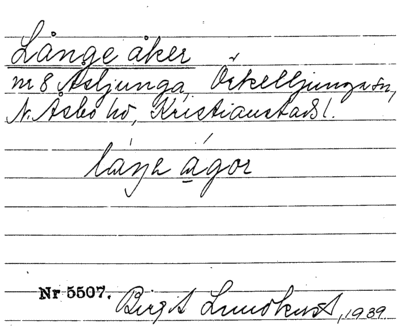 Långe åker
nr 8 Åsljunga, Örkelljunga sn,
N. Åsbo hd, Kristianstads l.
Nr 5507. Birgit Lundkvist, 1939